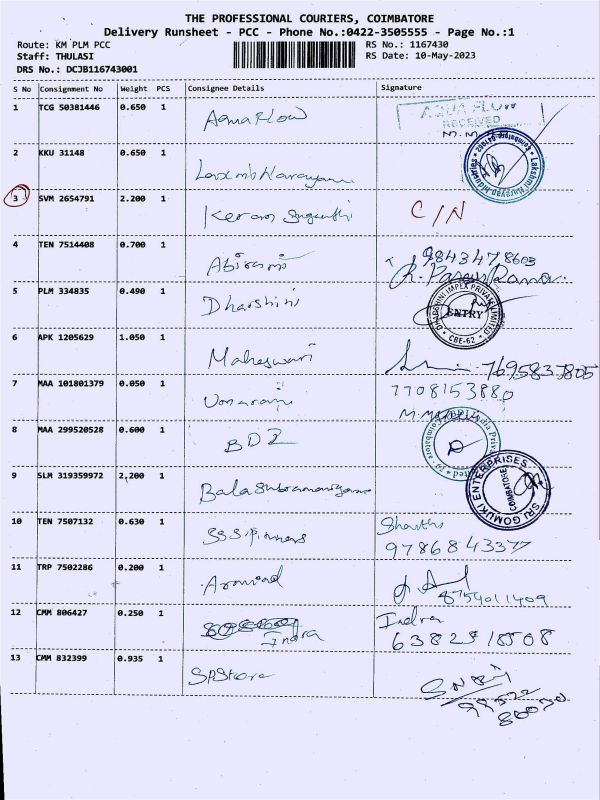 THE PROFESSIONAL COURIERS, COIMBATORE
Delivery Runsheet - PCC - Phone No.:0422-3505555 - Page No.:1
Route: KM PLM PCC RS No.: 1167430
Staff: THULASI RS Date: 10-May-2023
DRS No.: DCJB116743001
S No Consignment No Weight PCS Consignee Details Signature
1 TCG 50381446 0.650 1 Aqua Flow AQUA FLOW
RECEIVED
2 KKU 31148 0.650 1 Laxmi Narayan Lakshmi Narayan Industries
3 SVM 2654791 2.200 1 Keram Suganthi C/N
4 TEN 7514408 0.700 1 Abirami 9843478603
5 PLM 334835 0.490 1 Dharshini DHARSHINI IMPEX PRIVATE LIMITED
ENTRY
CBE-62
6 APK 1205629 1.050 1 Maheswari 7695837805
7 MAA 101801379 0.050 1 7708153880
8 MAA 299520528 0.600 1 BDZ
9 SLM 319359972 2,200 1 Balasubramaniyam SRI GOMUKI ENTERPRISES
COIMBATORE
10 TEN 7507132 0.630 1 SS Spinners
9786843377
11 TRP 7502286 0.200 1 Aravind 8754011409
12 CMM 806427 0.250 1 Indra Indra
6382918508
13 CMM 832399 0.935 1 SP Store